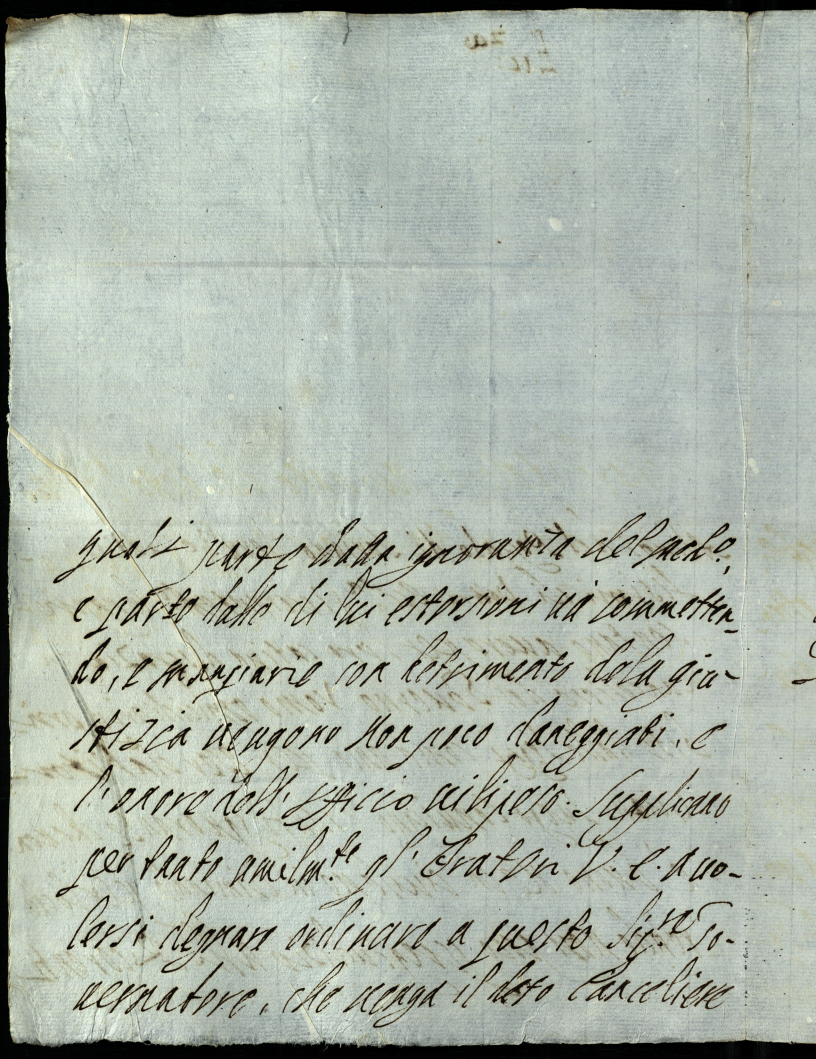 quali parte dalla ignoranza del med.o,
e parte dalle di lui estorsioni và commetten-
do, e mangiarie con detrimento dela giu-
stizia vengono non poco daneggiati, e
l'onore dell'Officio vilipeso. Supplicano
per tanto umilm.te gl'Oratori V. E. a vo-
lersi degnare ordinare a questo Sig.re Go-
vernatore, che venga il deto Canceliere